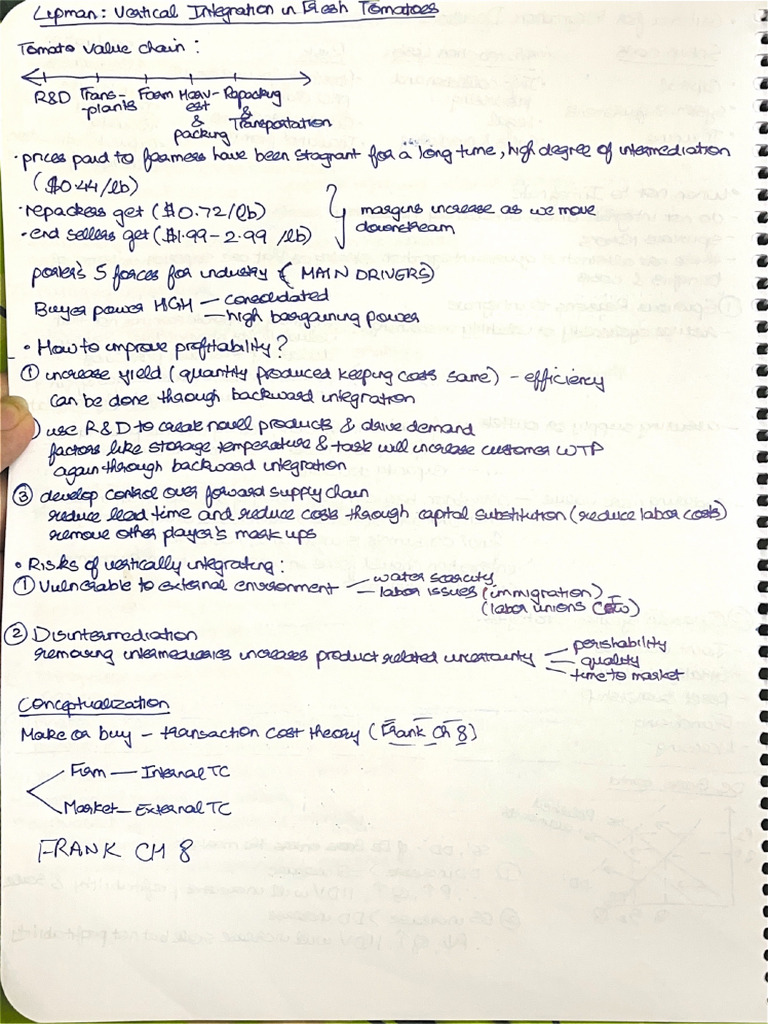 Lipman: Vertical Integration in Fresh Tomatoes
Tomato value chain:
R&D Trans-plants Farm Harv-est & packing Repacking & Transportation
• prices paid to farmers have been stagnant for a long time, high degree of intermediation
($0.44/lb)
• repackers get ($0.72/lb)
• end sellers get ($1.99-2.99 /lb)
margins increase as we move
downstream
porter's 5 forces for industry (MAIN DRIVERS)
Buyer power HIGH — consolidated
— high bargaining power
• How to improve profitability?
① increase yield (quantity produced keeping costs same) - efficiency
can be done through backward integration
) use R&D to create novel products & drive demand
factors like storage temperature & taste will increase customer WTP
again through backward integration
③ develop control over forward supply chain
reduce lead time and reduce costs through capital substitution (reduce labor costs)
remove other player's mark ups
• Risks of vertically integrating:
① Vulnerable to external environment — water scarcity
— labor issues (immigration)
(labor unions
② Disintermediation
removing intermediaries increases product related uncertainty — perishability
— quality
— time to market
Conceptualization
Make or buy - transaction cost theory (Frank Ch 8)
Firm — Internal TC
Market — External TC
FRANK CH 8